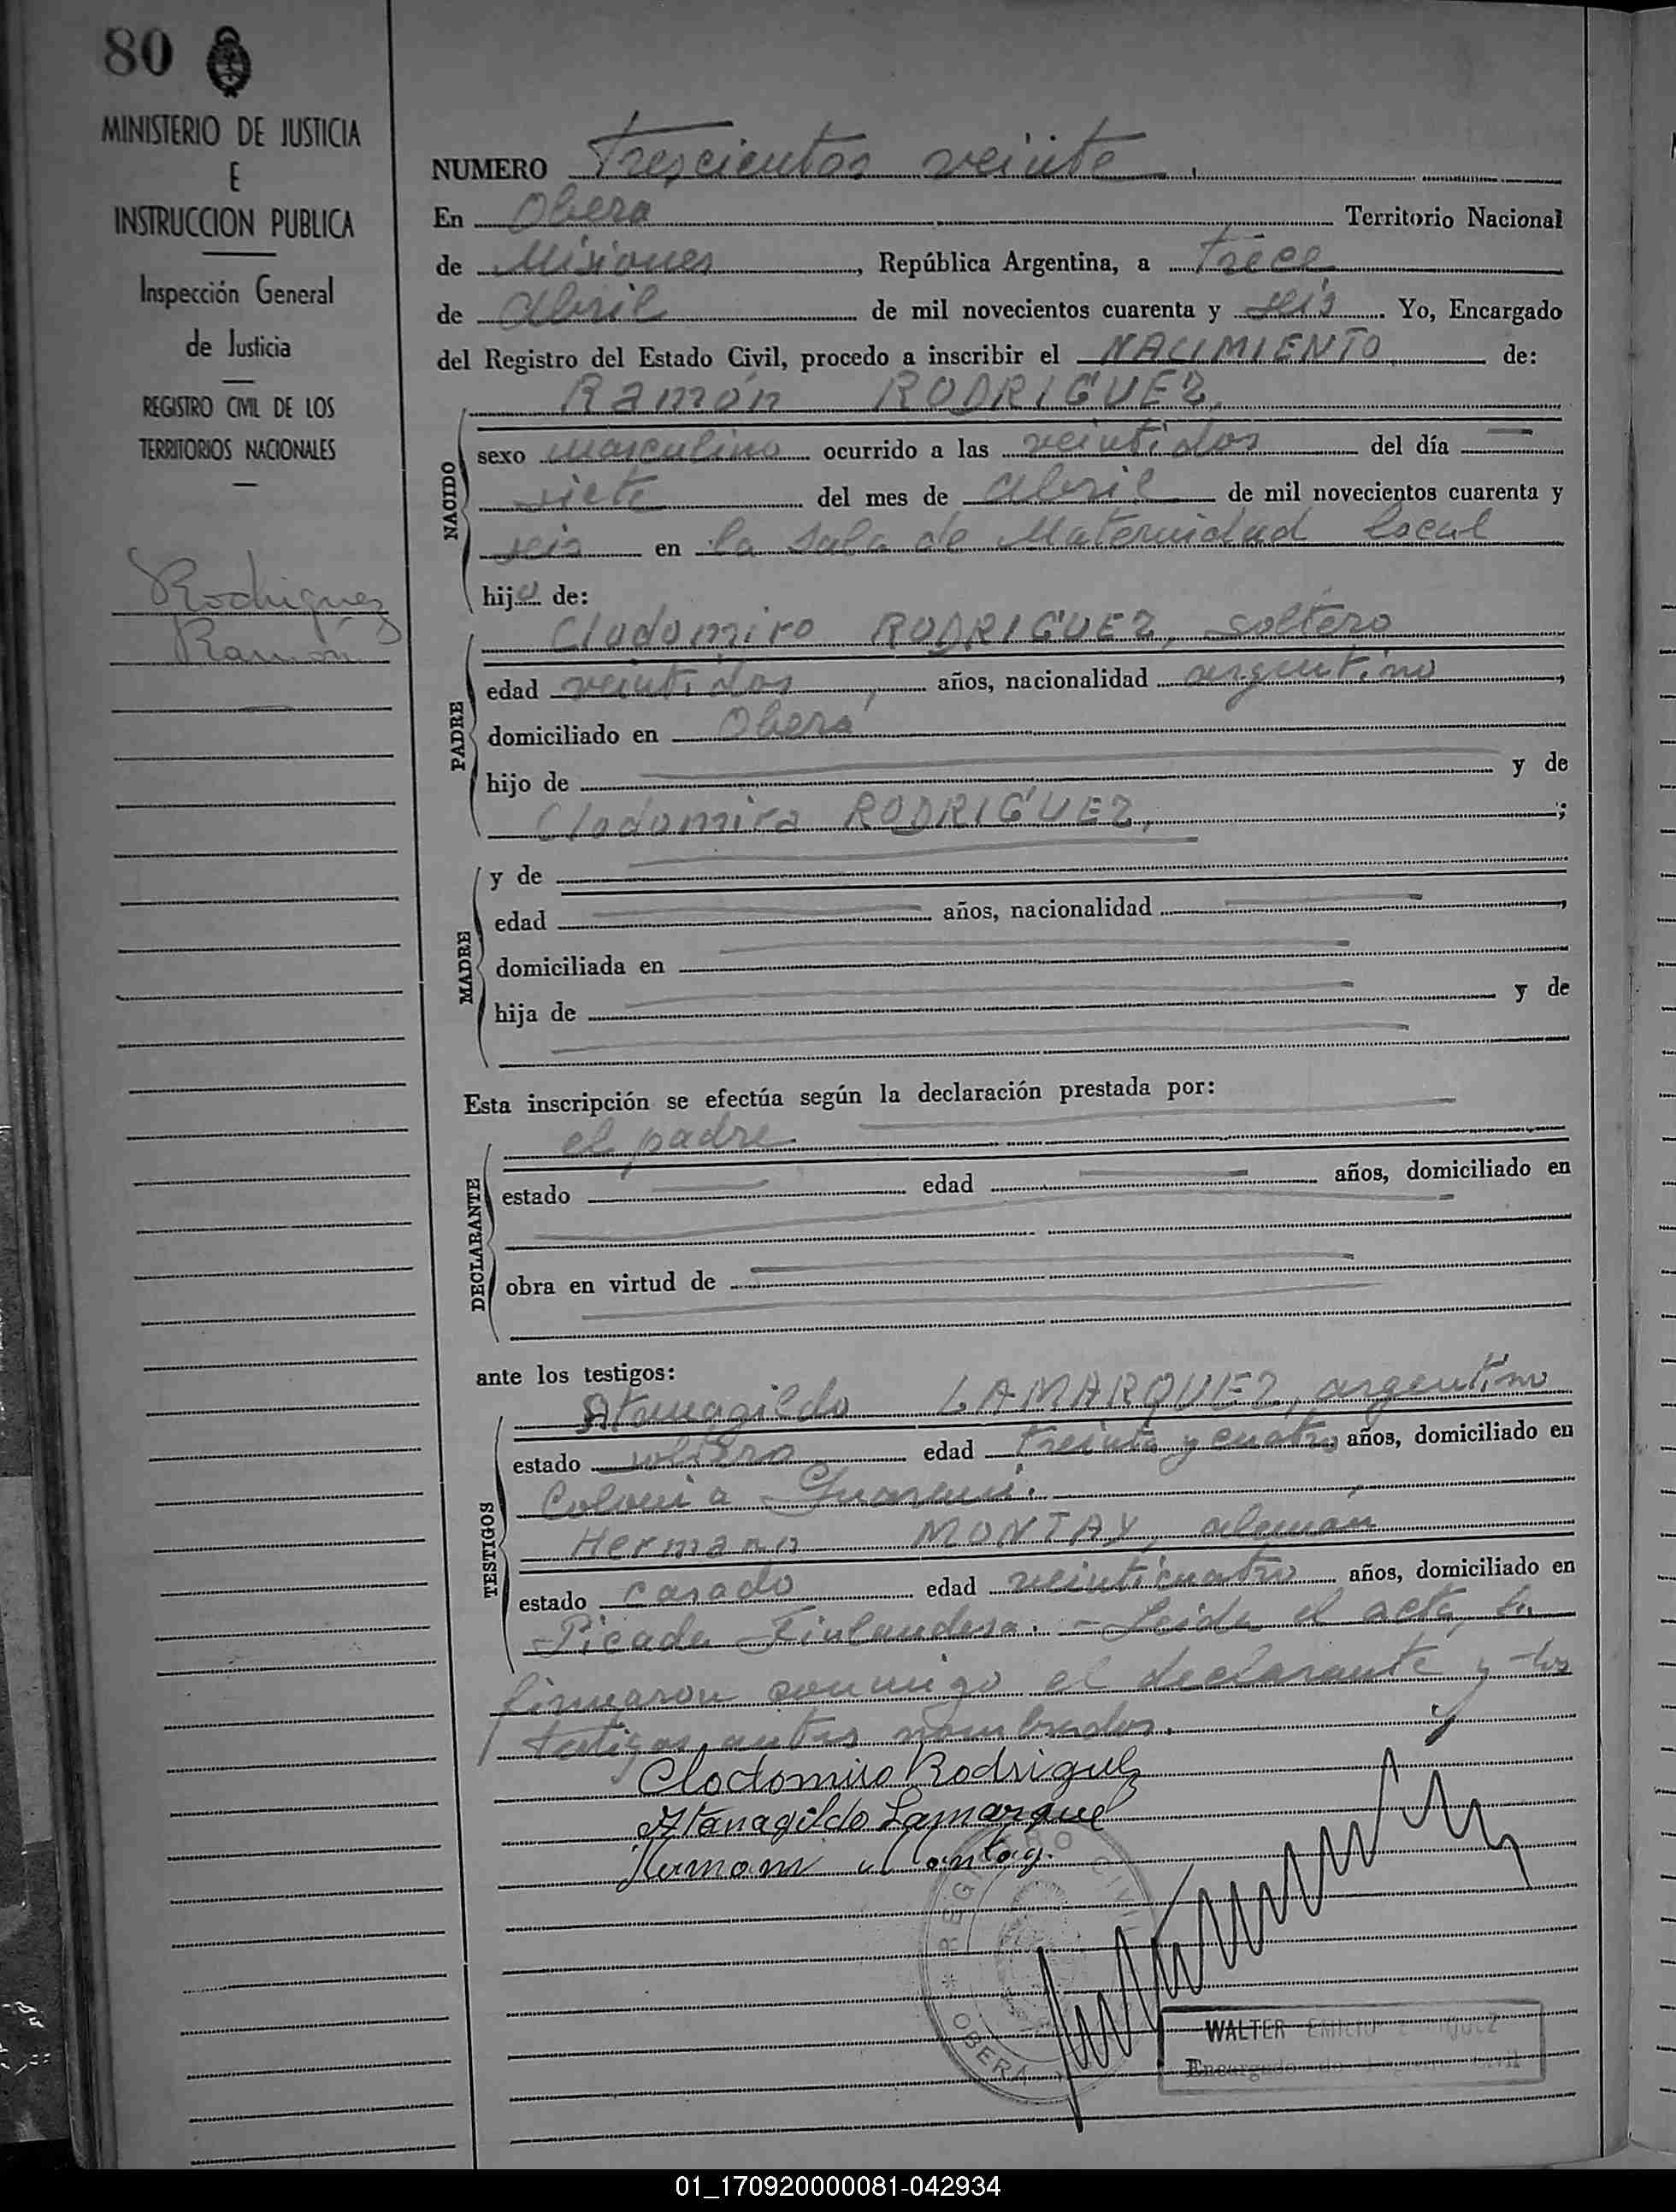 80
MINISTERIO DE JUSTICIA
E
INSTRUCCION PUBLICA
Inspección General
de Justicia
REGISTRO CIVIL DE LOS
TERRITORIOS NACIONALES
Rodriguez
Ramón
NUMERO Trescientos veinte
En Obera Territorio Nacional
de Misiones, República Argentina, a trece
de abril de mil novecientos cuarenta y seis. Yo, Encargado
del Registro del Estado Civil, procedo a inscribir el NACIMIENTO de:
NACIDO
Ramón RODRIGUEZ,
sexo masculino ocurrido a las veintidos del día
siete del mes de abril de mil novecientos cuarenta y
seis en la Sala de Maternidad local
hijo de:
PADRE
Clodomiro RODRIGUEZ, soltero
edad veintidos, años, nacionalidad argentino,
domiciliado en Oberá
hijo de y de
Clodomira RODRIGUEZ, ;
MADRE
y de
edad años, nacionalidad ,
domiciliada en
hija de y de
Esta inscripción se efectúa según la declaración prestada por:
DECLARANTE
el padre
estado edad años, domiciliado en
obra en virtud de
ante los testigos:
TESTIGOS
Atanagildo LAMARQUEZ, argentino
estado soltero edad treinta y cuatro años, domiciliado en
Colonia Guarani.
Hermann MONTAY, alemán
estado casado edad veinticuatro años, domiciliado en
Picada Finlandesa. - Leida el acta, la
firmaron conmigo el declarante y los
testigos antes nombrados.
Clodomiro Rodriguez
Atanagildo Lamarque
Hermann Montag.
REGISTRO CIVIL * OBERÁ
WALTER EMILIO
Encargado de Registro Civil
01_170920000081-042934